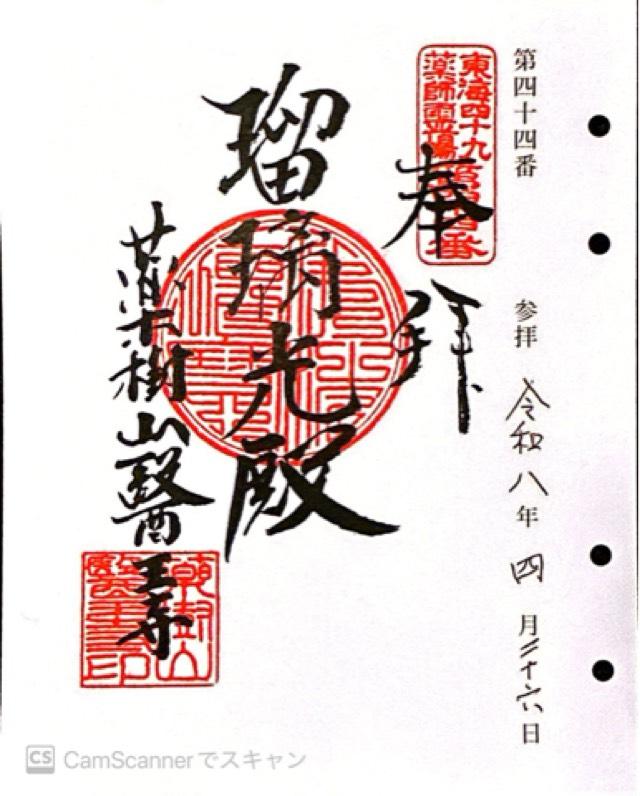 第四十四番 参拝 令和八年四月二十六日
東海四十九
薬師霊場
奉拝
瑠璃光殿
薬樹山醫王寺
CS CamScannerでスキャン